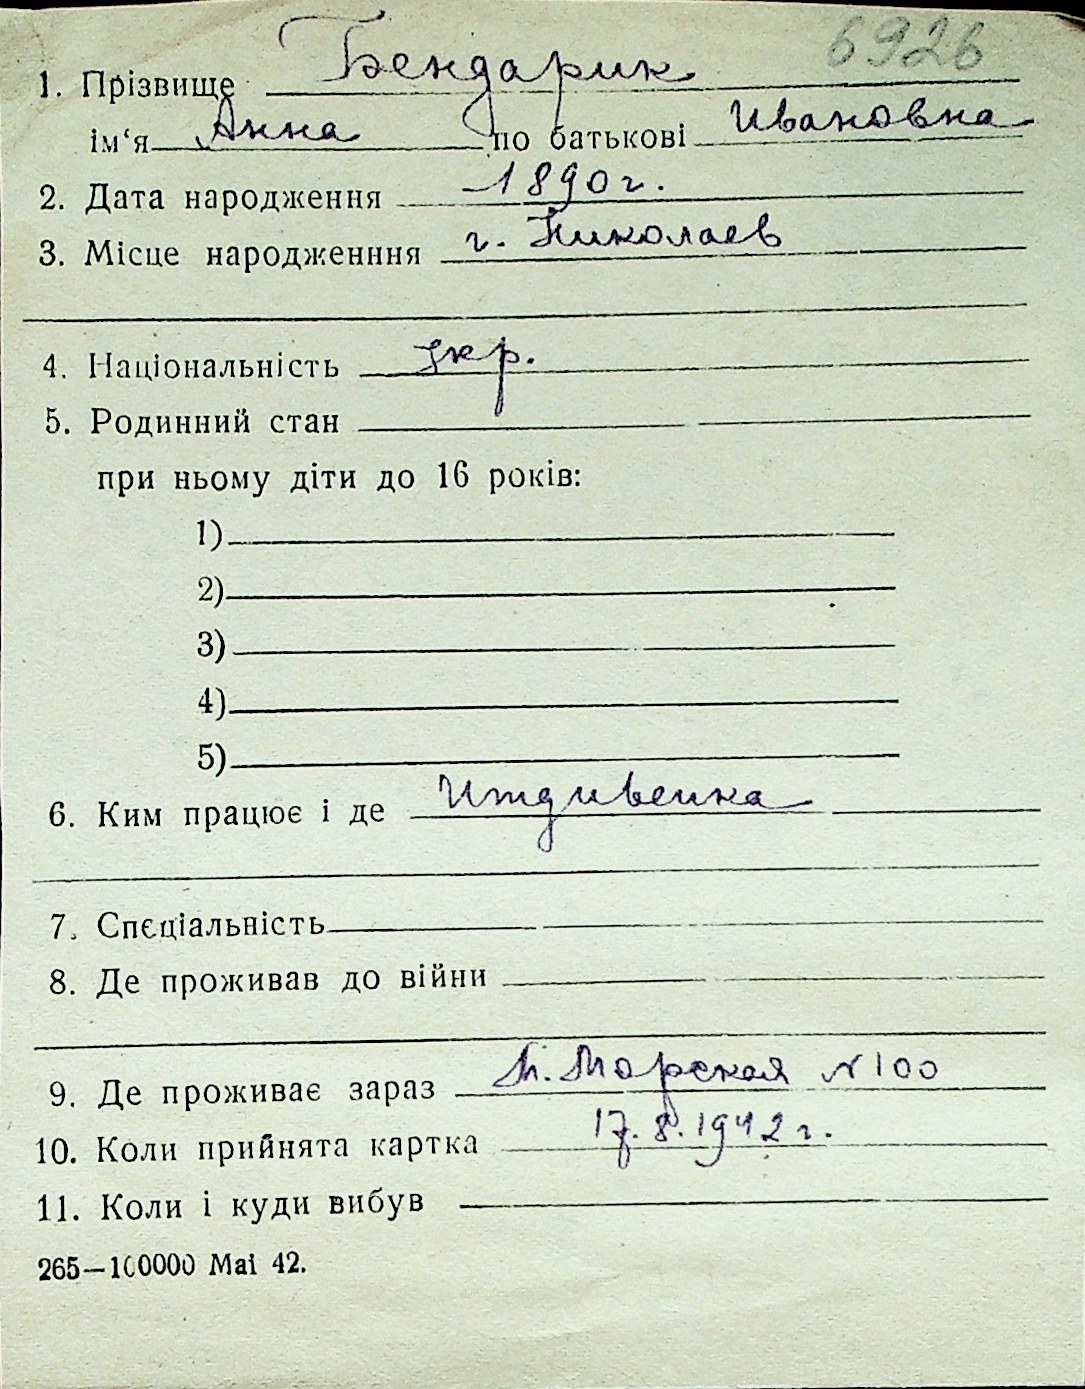 6926
1. Прізвище Бендарик
ім‘я Анна по батькові Ивановна
2. Дата народження 1890 г.
3. Місце народженння г. Николаев
4. Національність укр.
5. Родинний стан
при ньому діти до 16 років:
1)
2)
3)
4)
5)
6. Ким працює і де Иждивенка
7. Спеціальність
8. Де проживав до війни
9. Де проживає зараз М. Морская N 100
10. Коли прийнята картка 17. 8. 1942 г.
11. Коли і куди вибув
265—100000 Mai 42.